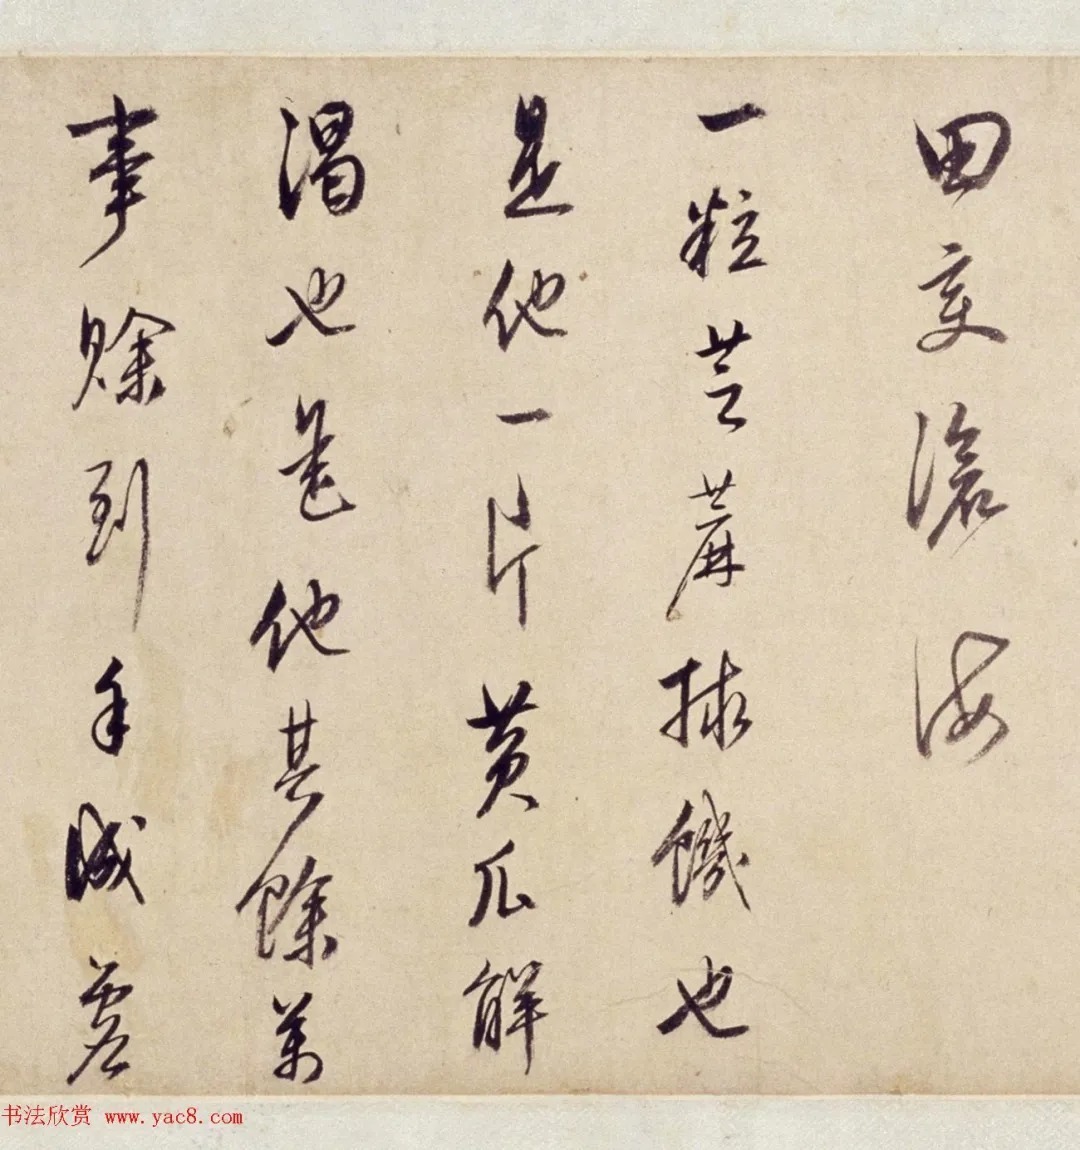 田變滄海
一粒芝蔴捄饑也
是他一片黃瓜解
渴也是他其餘萬
事賒到手
书法欣赏 www.yac8.com